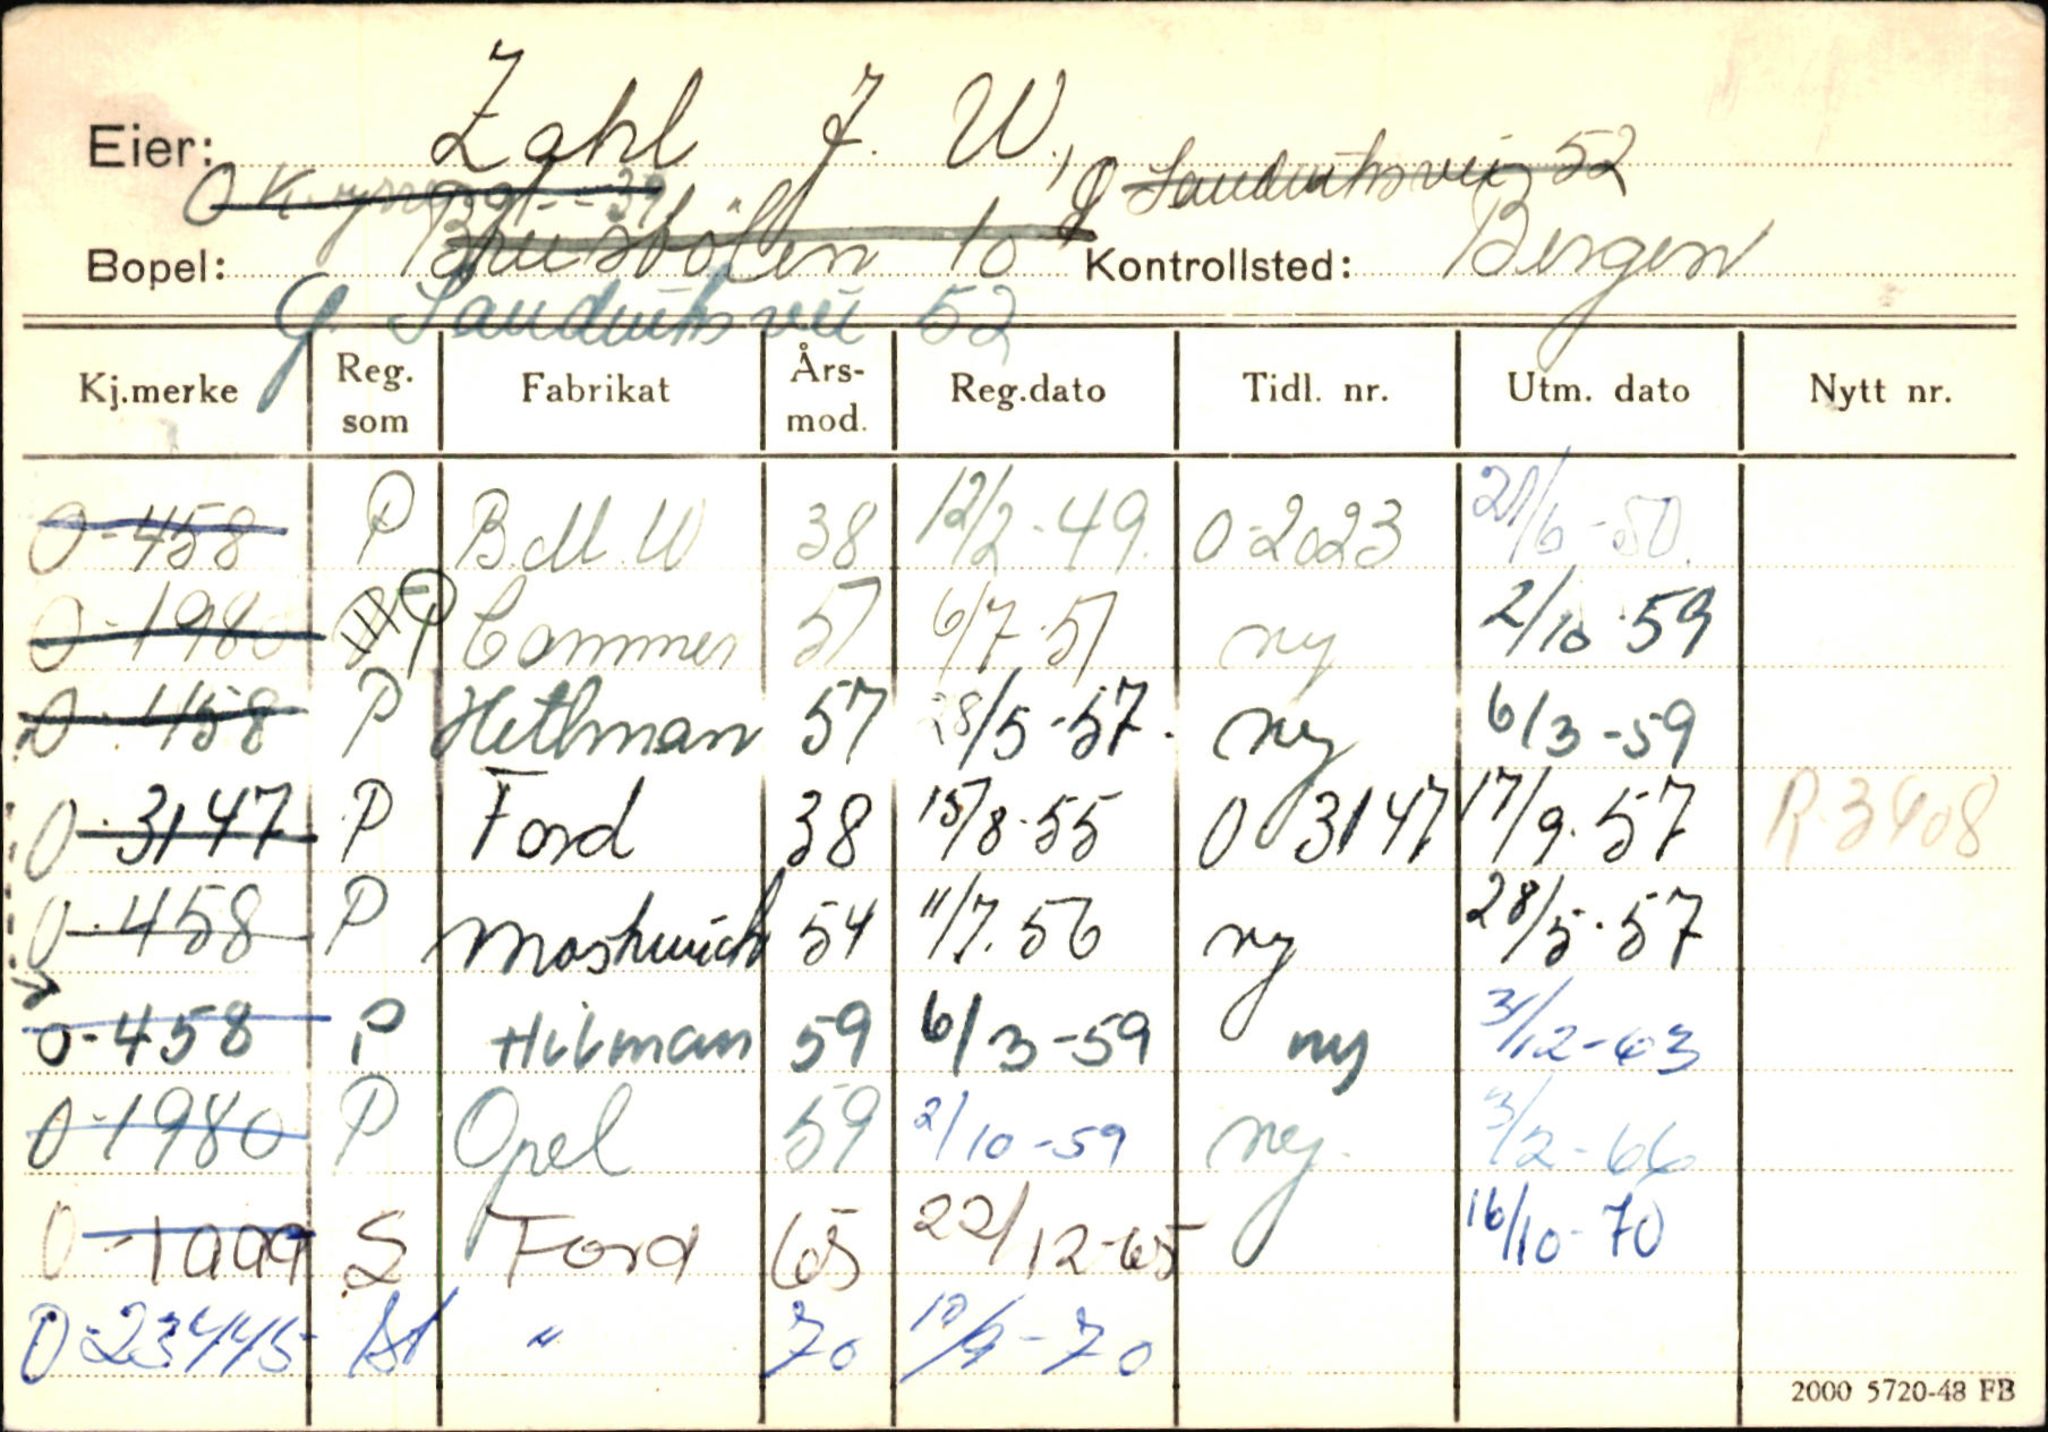 Eier: Zahl J. W.,
O K. 39 G Sandviksvei 52
Bopel: 10 Kontrollsted: Bergen
G. Sandviksvei 52
Kj.merke Reg. som Fabrikat Års-mod. Reg.dato Tidl. nr. Utm. dato Nytt nr.
O-458 P B.M.W 38 12/2-49. O-2023 21/6-50.
O-1980 Commer 51 6/7-51 ny 2/10-59
O-458 P Hillman 57 28/5-57. ny 6/3-59
O-3147 P Ford 38 15/8-55 O 3147 17/9-57 R-3408
O-458 P Moskwich 54 11/7.56 ny 28/5-57
O-458 P Hilman 59 6/3-59 ny 3/12-63
O-1980 P Opel 59 2/10-59 ny. 3/2-66
O-1999 S Ford 65 22/12-65 16/10-70
O-23445 St " 70 10/9-70
2000 5720-48 FB